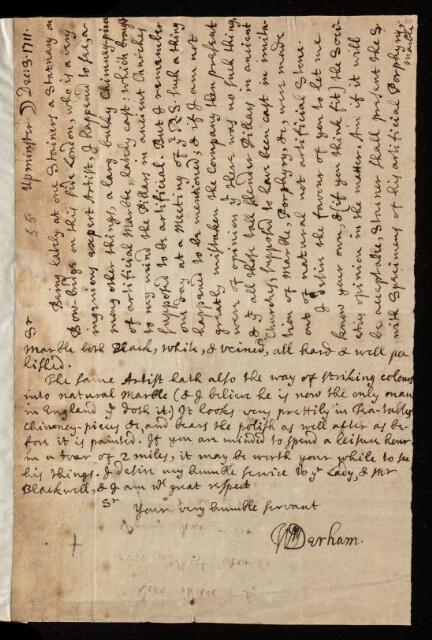 55 Upminster ☽ Dec. 3. 1711.
Sr
Being lately at one Stainers a Statuary
bridge on this side London, who is a very
ingenious expert Artist, I happened to see,
many other things, a large bulky Chimney-piece
of artificial Marble, lately cast: which brought
to my mind the Pillars in ancient Churches
suppos'd to be artificial. But I remember
one day at a Meeting of ye R.S. such a thing
happened to be mentioned; & if I am not
greatly mistaken the company then present
were of opinion yt there was no such thing,
& yt all those tall slender Pillars in ancient
Churches, suppos'd to have been cast in imita-
tion of Marble, Porphyry, &c, were made
out of natural not artificial Stone.
I desire the favour of you to let me
know your own, & (if you think fit) the Soci-
eties opinion in the matter. And if it will
be acceptable, Stainer shall present the S
with Specimens of his artificial Porphyry,
Marble
Marble both Black, white, & veined, all hard & well po
lished.
The same Artist hath also the way of striking colours
into natural Marble (& I believe he is now the only man
in England yt doth it) It looks very prettily in Tea-tables
Chimney-pieces &c, and bears the polish as well after as be-
fore it is painted. If you are minded to spend a leisure hour
in a tour of 2 miles, it may be worth your while to see
his things. I desire my humble service to yr Lady, & Mr
Blackwell, & I am wth great respect
Sr
Your very humble servant
Wm Derham.